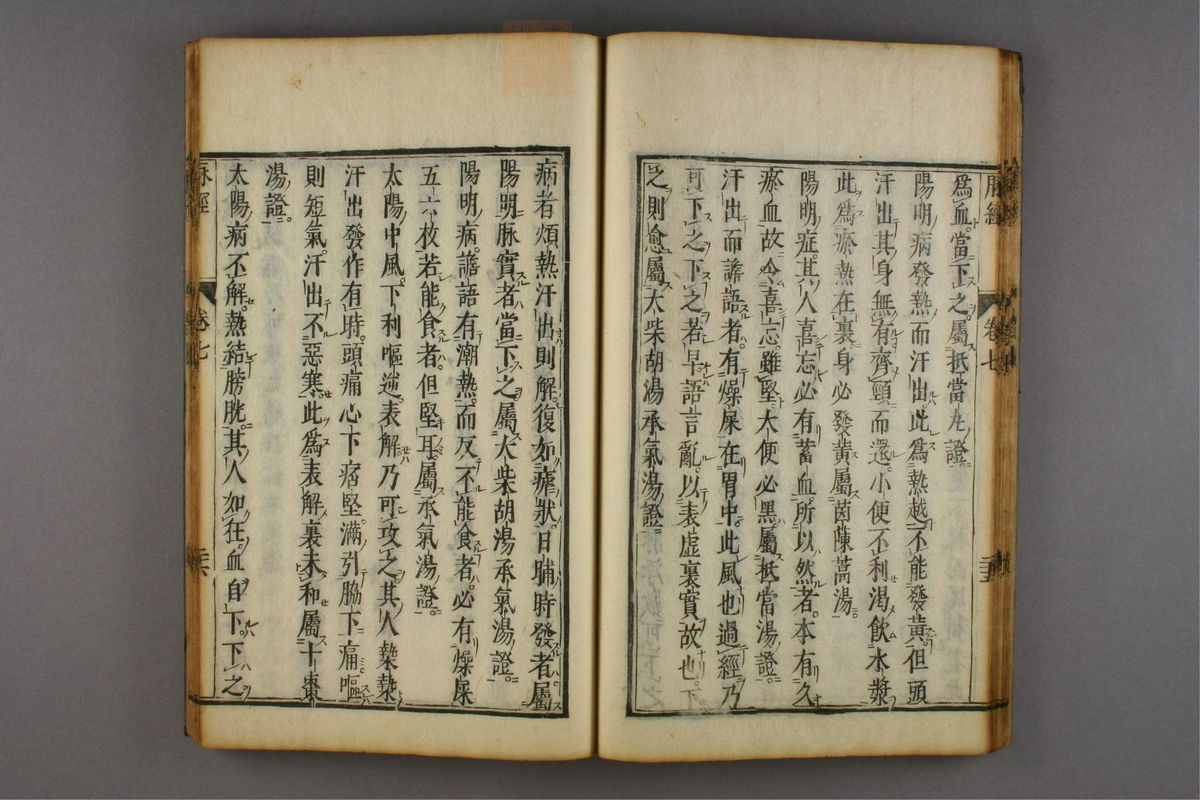 脉經
卷七
二十五
爲血當下之屬抵當丸證
陽明病發熱而汗出此爲熱越不能發黃但頭
汗出其身無有齊頸而還小便不利渴飲水漿
此爲瘀熱在裏身必發黃屬茵陳蒿湯
陽明症其人喜忘必有蓄血所以然者本有久
瘀血故令喜忘雖堅大便必黑屬抵當湯證
汗出而譫語者有燥屎在胃中此風也過經乃
可下之下之若早語言亂以表虛裏實故也下
之則愈屬大柴胡湯承氣湯證
病者煩熱汗出則解復如瘧狀日晡時發者屬
陽明脉實者當下之屬大柴胡湯承氣湯證
陽明病譫語有潮熱而反不能食者必有燥屎
五六枚若能食者但堅耳屬承氣湯證
太陽中風下利嘔逆表解乃可攻之其人漐漐
汗出發作有時頭痛心下痞堅滿引脇下痛嘔
則短氣汗出不惡寒此爲表解裏未和屬十棗
湯證
太陽病不解熱結膀胱其人如狂血自下下之
脉經
卷七
二十六